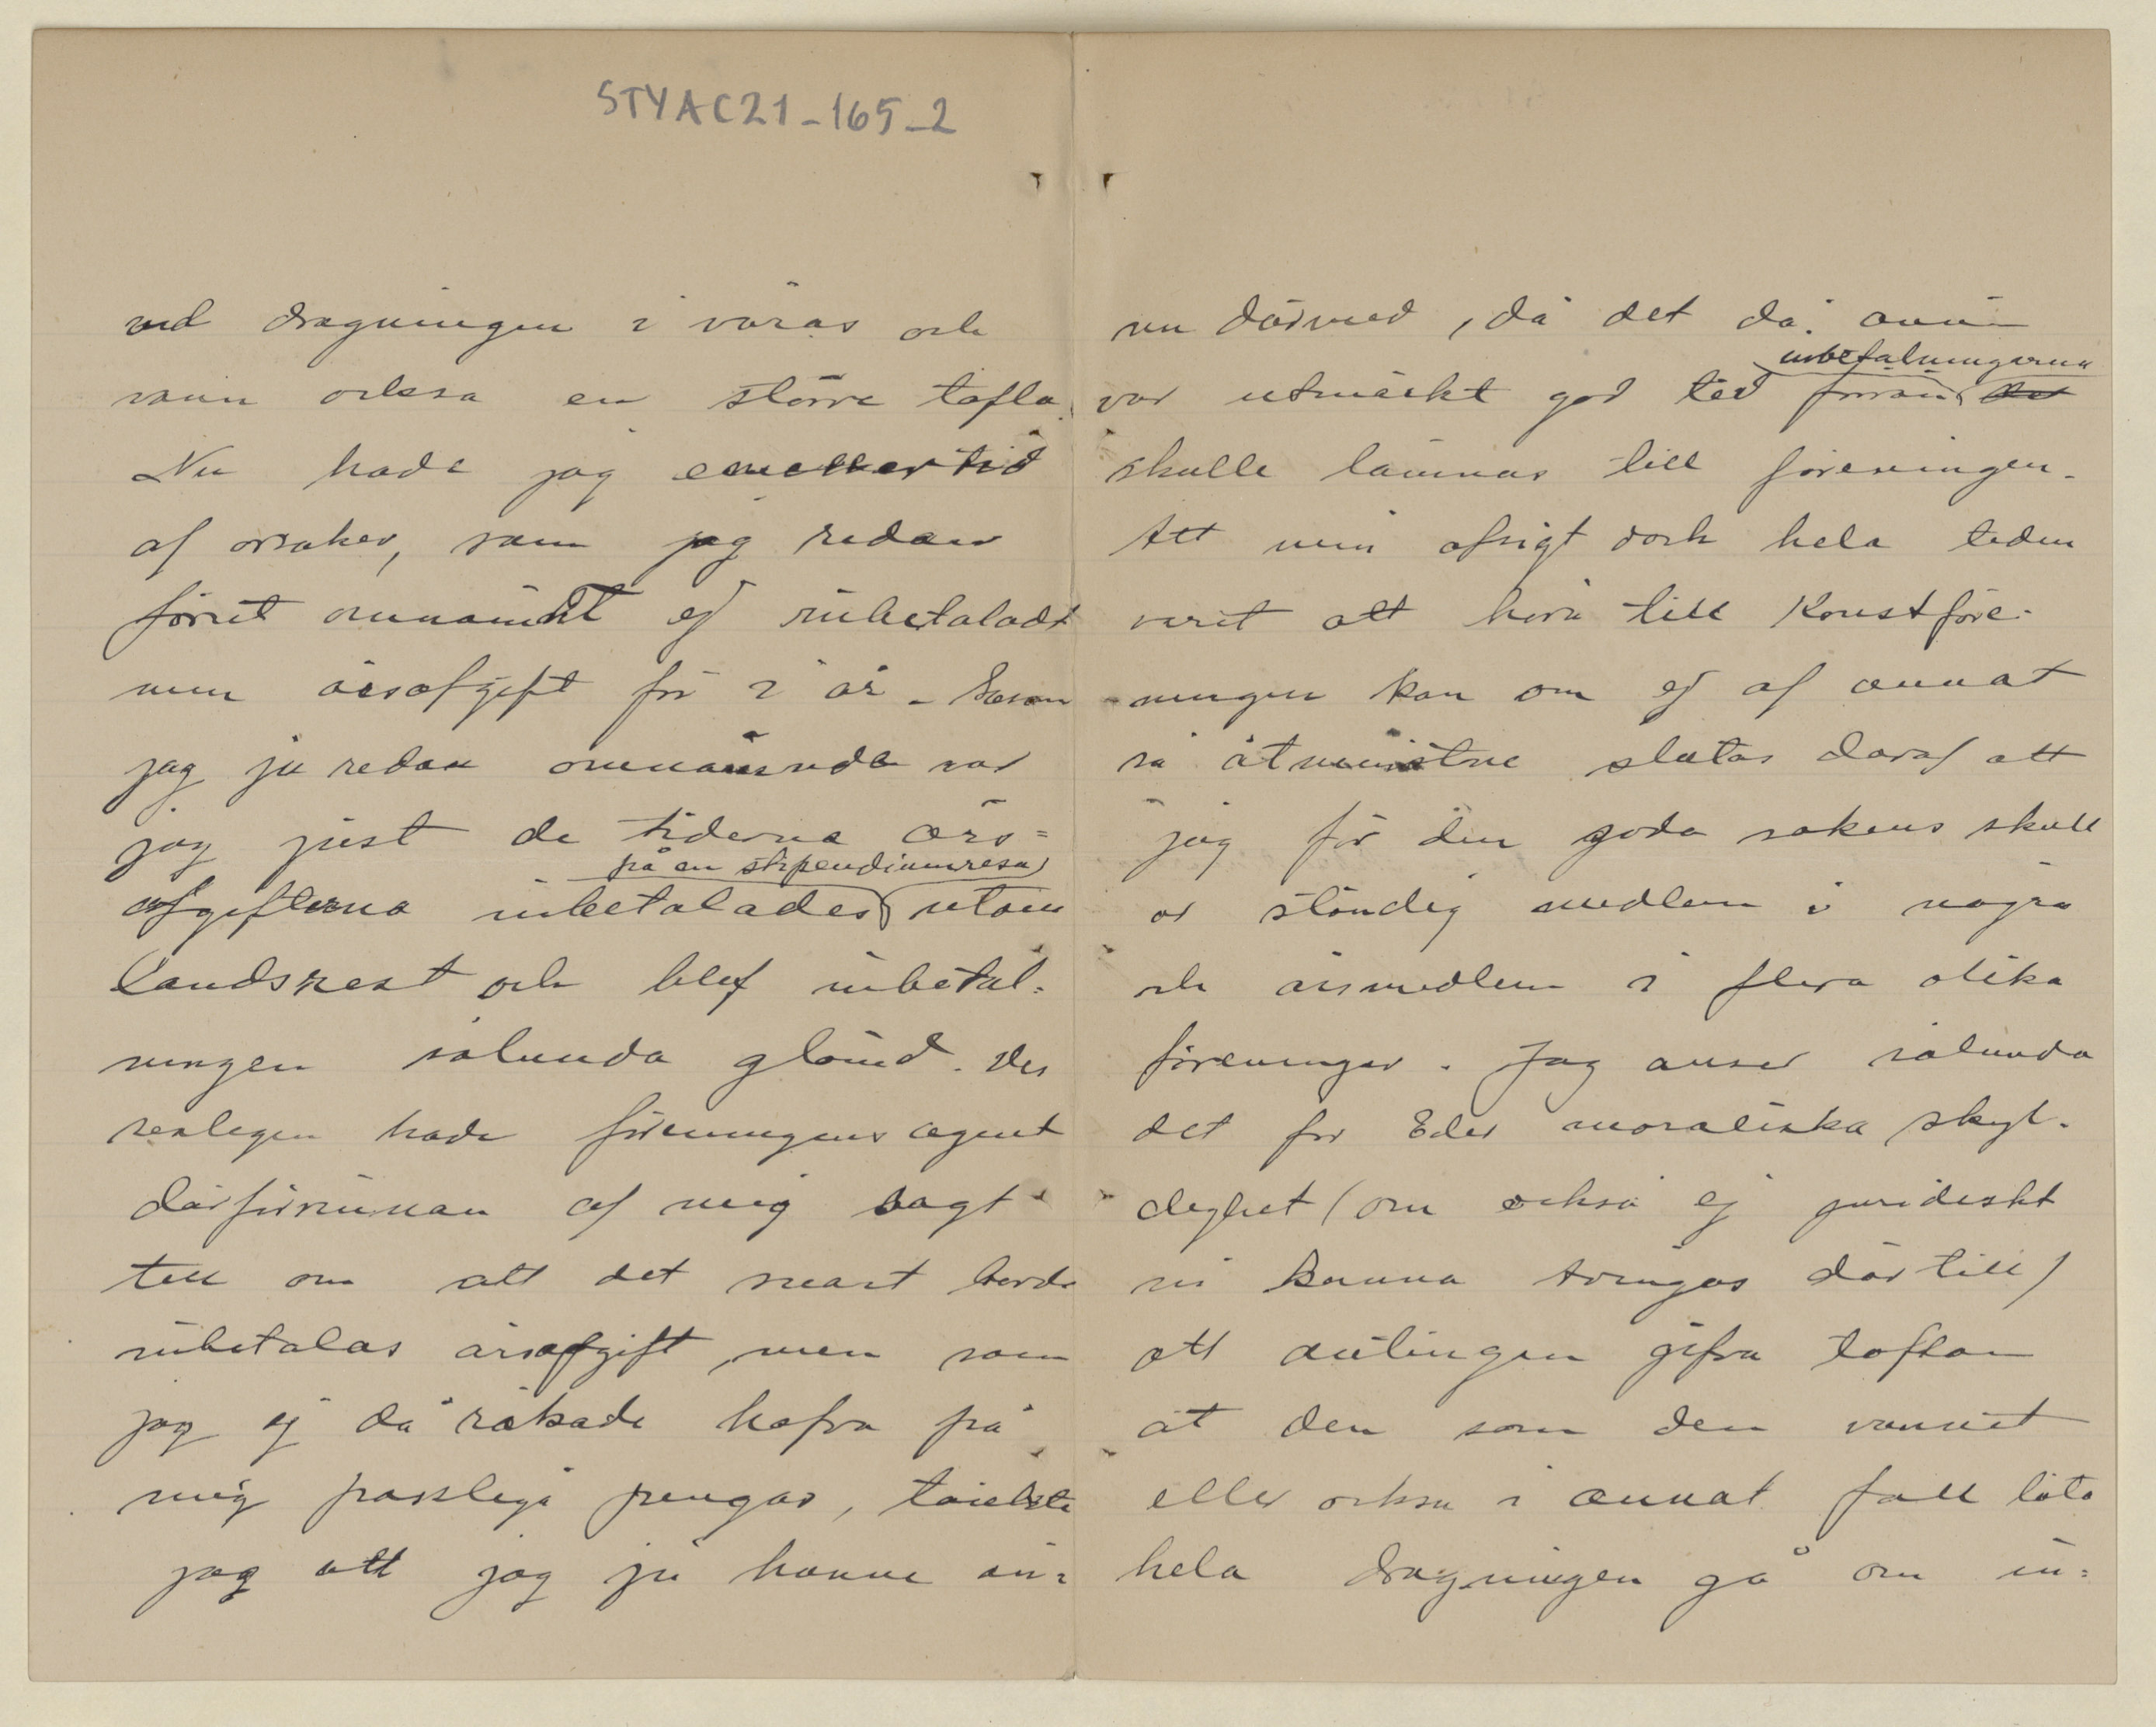 STYAC21-165-2
vid dragningen i våras och
vann också en större tafla.
Nu hade jag emellertid
af orsaker, som jag redan
förut omnämnt ej inbetaladt
min årsafgift för i år. Såsom
jag ju redan omnämnde var
jag just de tiderna års=
på en stipendiumresa
afgifterna inbetalades utom
landsrest och blef inbetal=
ningen sålunda glömd. Des
renlegen hade föreningens agent
därförinnan af mig sagt
till om att det snart borde
inbetalas årsafgift, men som
jag ej då råkade hafva på
mig passliga pengar, tänkte
jag att jag ju hanne än=
nu därmed, då det då ännu
inbetalningarna
var utmärkt god tid förrän det
skulle lämnas till föreningen.
Att min afsigt dock hela tiden
varit att höra till Konstföre-
ningen kan om ej af annat
så åtminstone slutas daraf att
jag för den goda sakens skull
är ständig medlem i några
och årsmedlem i flera olika
föreningar. Jag anser sålunda
det för Eder moraliska skyl-
dighet (om också ej juridiskt
ni kunna tvingas därtill)
att antingen gifva taflan
åt den som den vunnit
eller också i annat fall låta
hela dragningen gå om in=